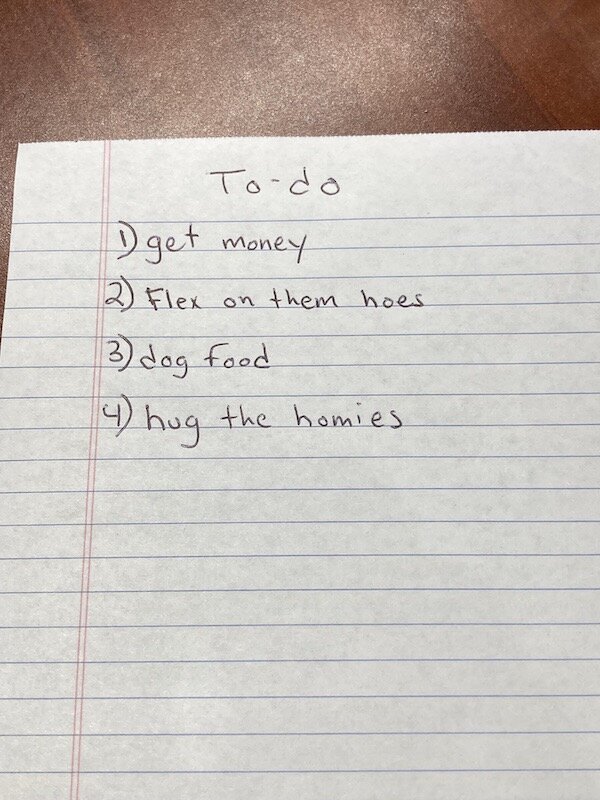 To-do
1) get money
2) Flex on them hoes
3) dog food
4) hug the homies